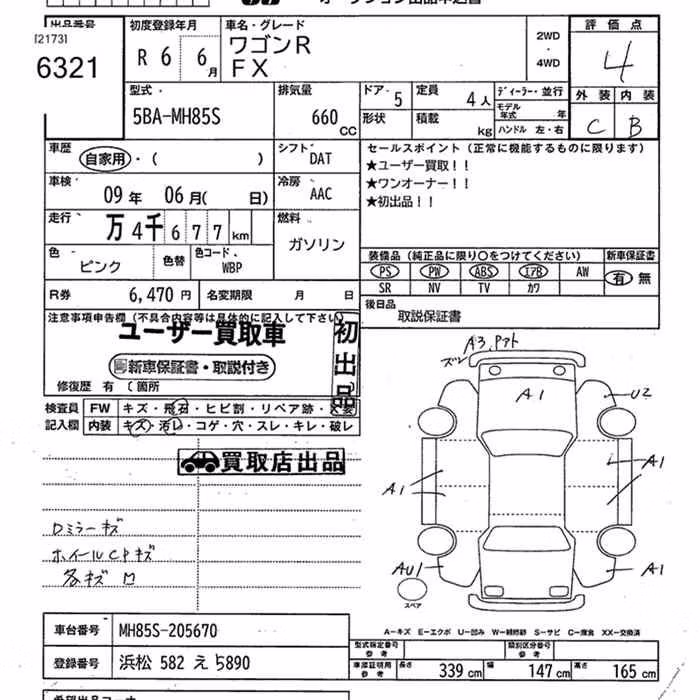 出品番号 [2173] 6321
初度登録年月 R 6 6月
車名・グレード ワゴンR FX
2WD ・ 4WD
評価点 4
外装 C 内装 B
型式 5BA-MH85S
排気量 660 CC
ドア 5 形状
定員 4人 積載 kg
ディーラー・並行
モデル年式 年
ハンドル 左・右
車歴 自家用・( )
シフト DAT
車検 09年 06月( 日)
冷房 AAC
走行 万4千677km
燃料 ガソリン
色 ピンク 色替 色コード WBP
R券 6,470円 名変期限 月 日
セールスポイント(正常に機能するものに限ります)
★ユーザー買取!!
★ワンオーナー!!
★初出品!!
装備品(純正品に限り○をつけてください) 新車保証書
PS PW ABS エアB AW 有 無
SR NV TV カワ
後日品 取説保証書
注意事項申告欄(不具合内容等は具体的に記入して下さい)
ユーザー買取車
初出品
新車保証書・取説付き
修復歴 有 〔箇所
検査員記入欄
FW キズ・飛石・ヒビ割・リペア跡・
内装 キズ・汚レ・コゲ・穴・スレ・キレ・破レ
買取店出品
Dミラーキズ
ホイールCPキズ
各キズ
A3,Pアト
ズレ
A1
U2
A1
A1
AU1
A1
スペア
A-キズ E-エクボ U-凹み W-補修跡 S-サビ C-腐食 XX-交換済
車台番号 MH85S-205670
登録番号 浜松 582 え 5890
型式指定番号 参考 類別区分番号 参考
車庫証明用 参考 長さ 339cm 幅 147cm 高さ 165cm